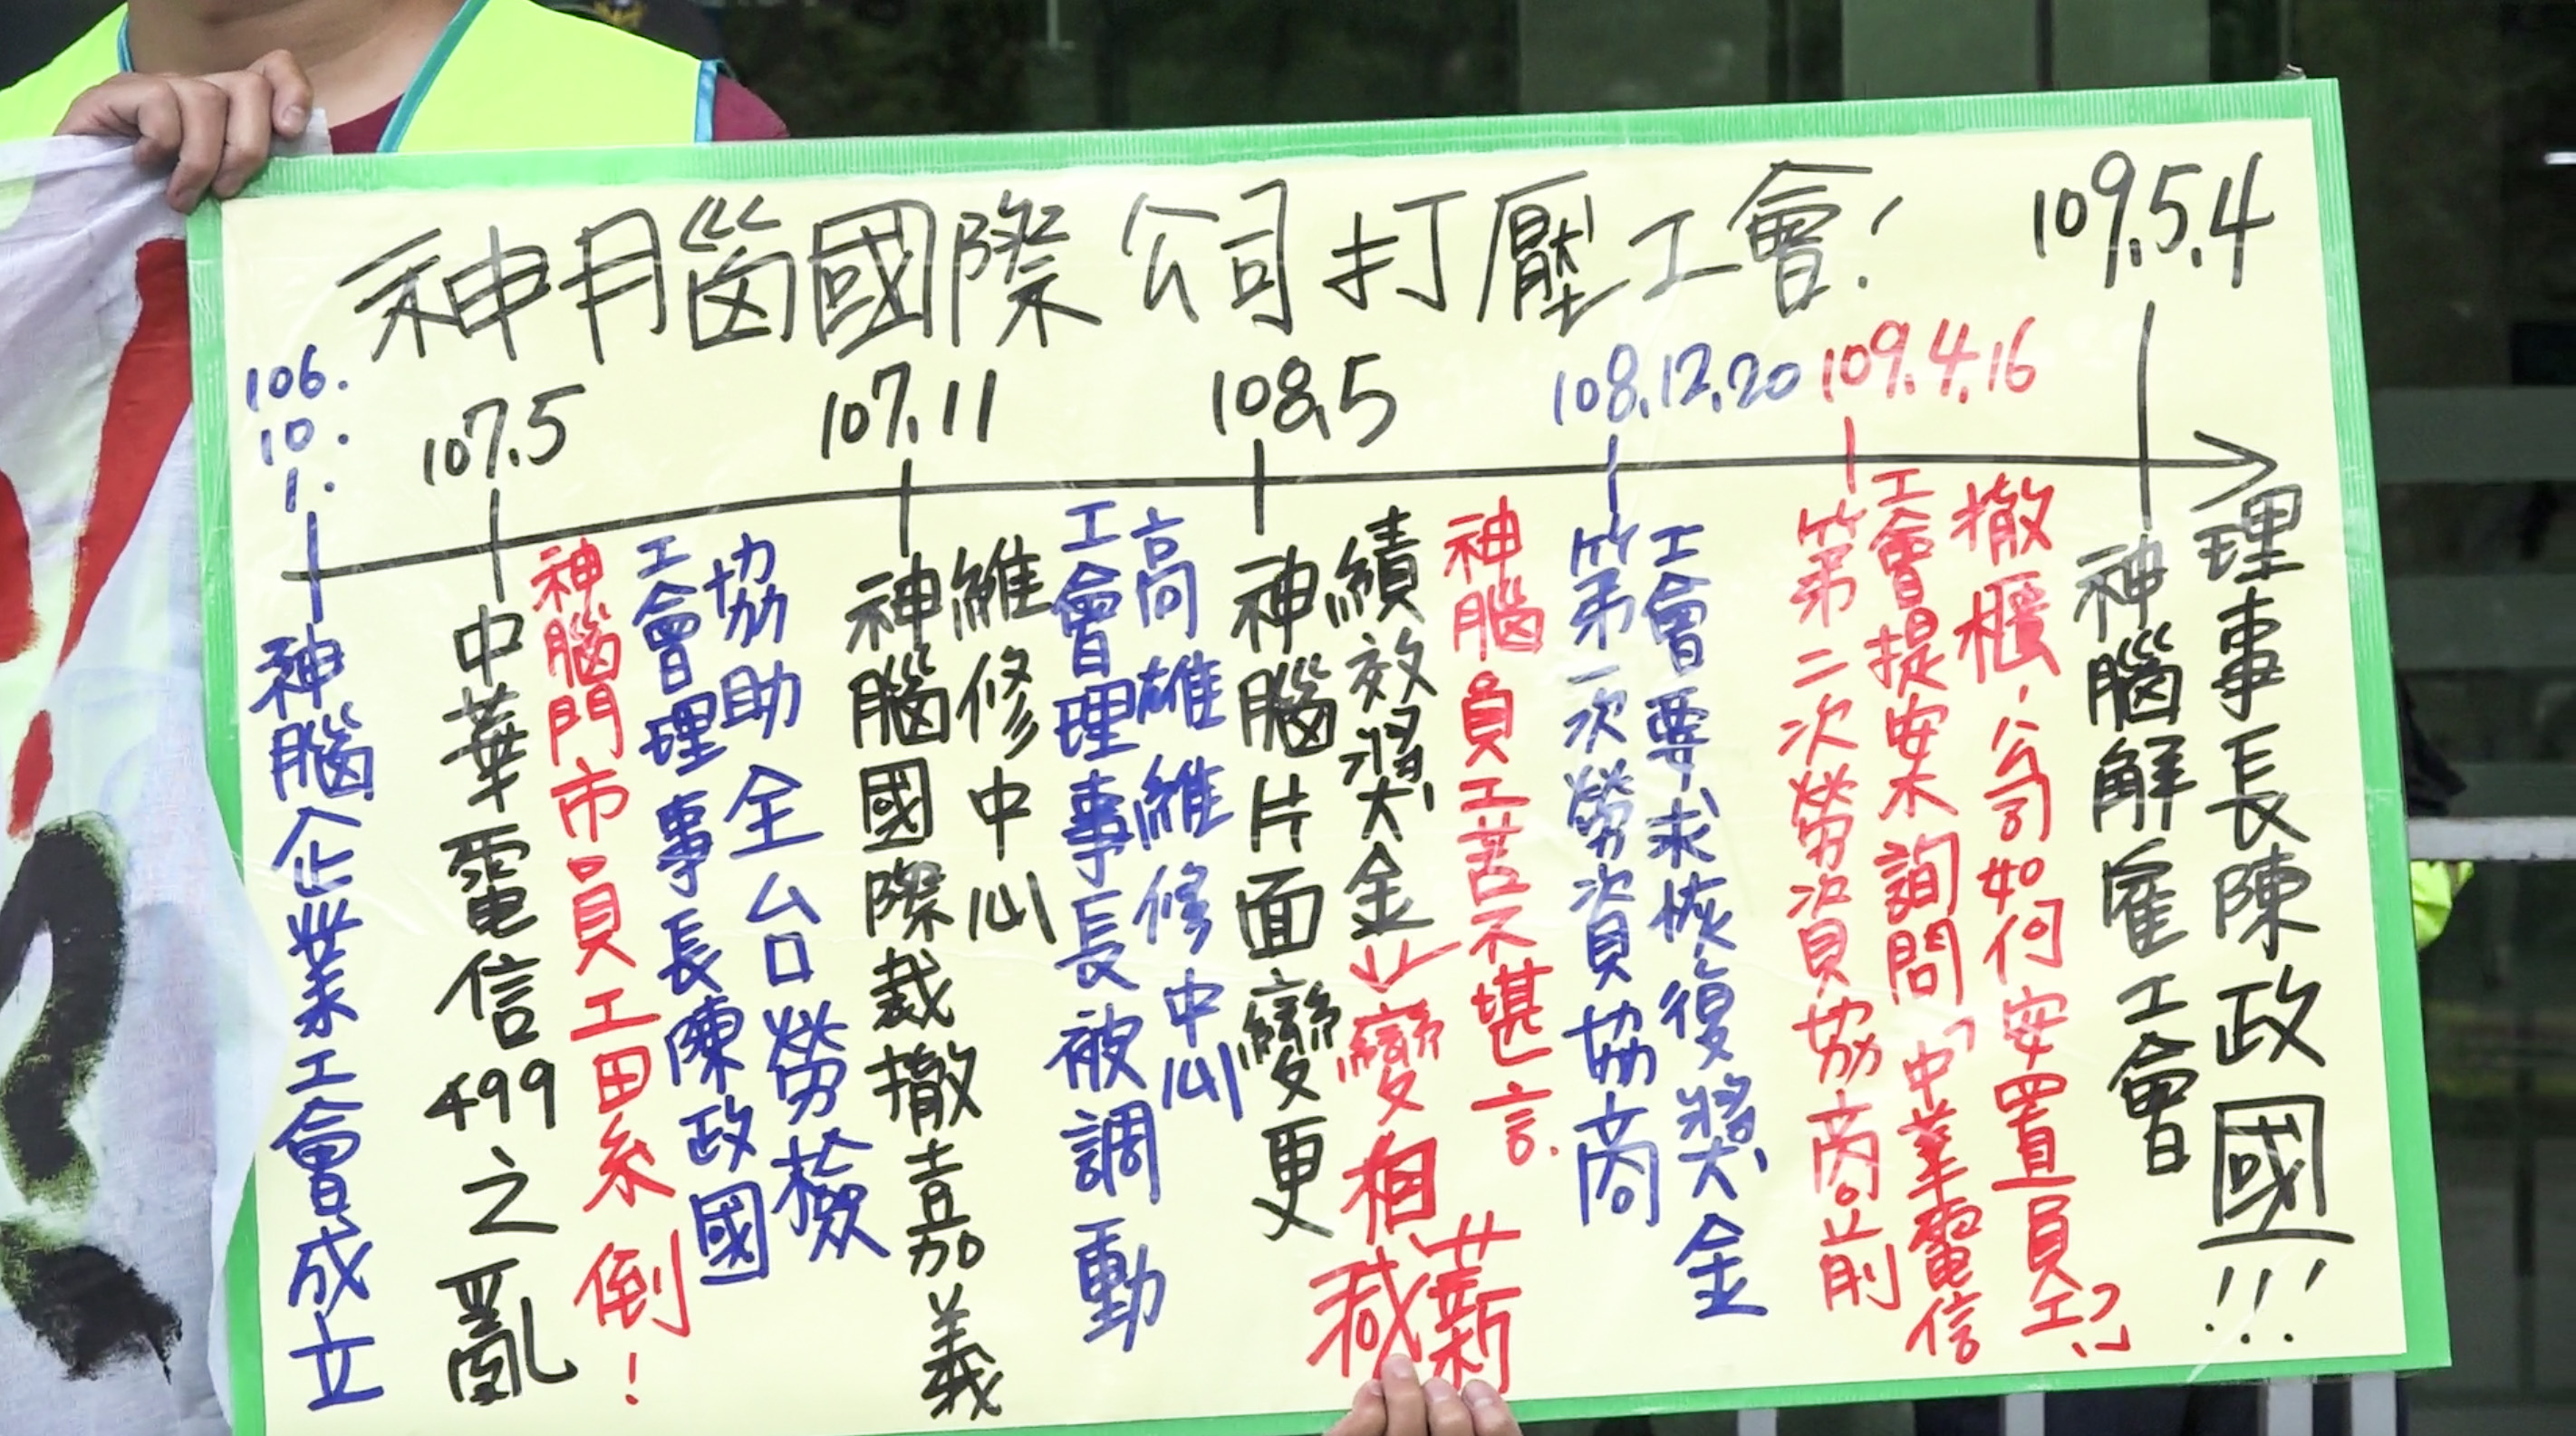 神腦國際公司打壓工會!
106.10.1.
神腦企業工會成立
107.5
中華電信499之亂
神腦門市員工累倒!
工會理事長陳政國
協助全台勞檢
107.11
神腦國際裁撤嘉義
維修中心
工會理事長被調動
高雄維修中心
108.5
神腦片面變更
績效獎金
變相減薪
神腦員工苦不堪言.
108.12.20
第一次勞資協商
工會要求恢復獎金
109.4.16
第二次勞資協商前
工會提案詢問「中華電信
撤櫃,公司如何安置員工?」
109.5.4
神腦解雇工會
理事長陳政國!!!